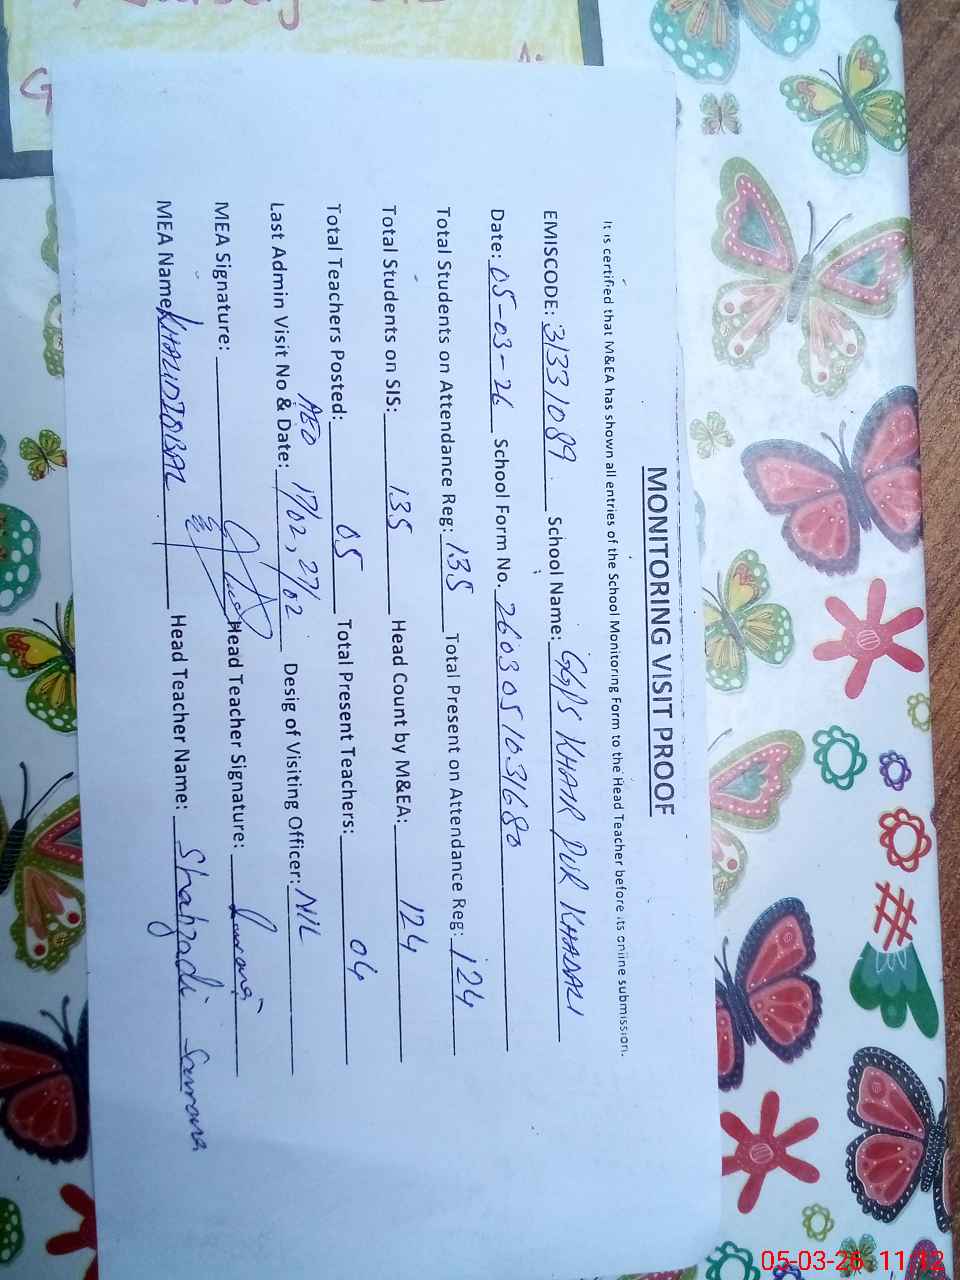 MONITORING VISIT PROOF
It is certified that M&EA has shown all entries of the School Monitoring Form to the Head Teacher before its online submission.
EMISCODE: 31331089 School Name: GGPS KHAIR PUR KHADALI
Date: 05-03-26 School Form No. 2603051031680
Total Students on Attendance Reg: 135 Total Present on Attendance Reg: 124
Total Students on SIS: 135 Head Count by M&EA: 124
Total Teachers Posted: 05 Total Present Teachers: 04
Last Admin Visit No & Date: AEO 17/02, 27/02 Desig of Visiting Officer: NIL
MEA Signature: Head Teacher Signature:
MEA Name KHALID IQBAL Head Teacher Name: Shahzadi Samana
05-03-26 11:12